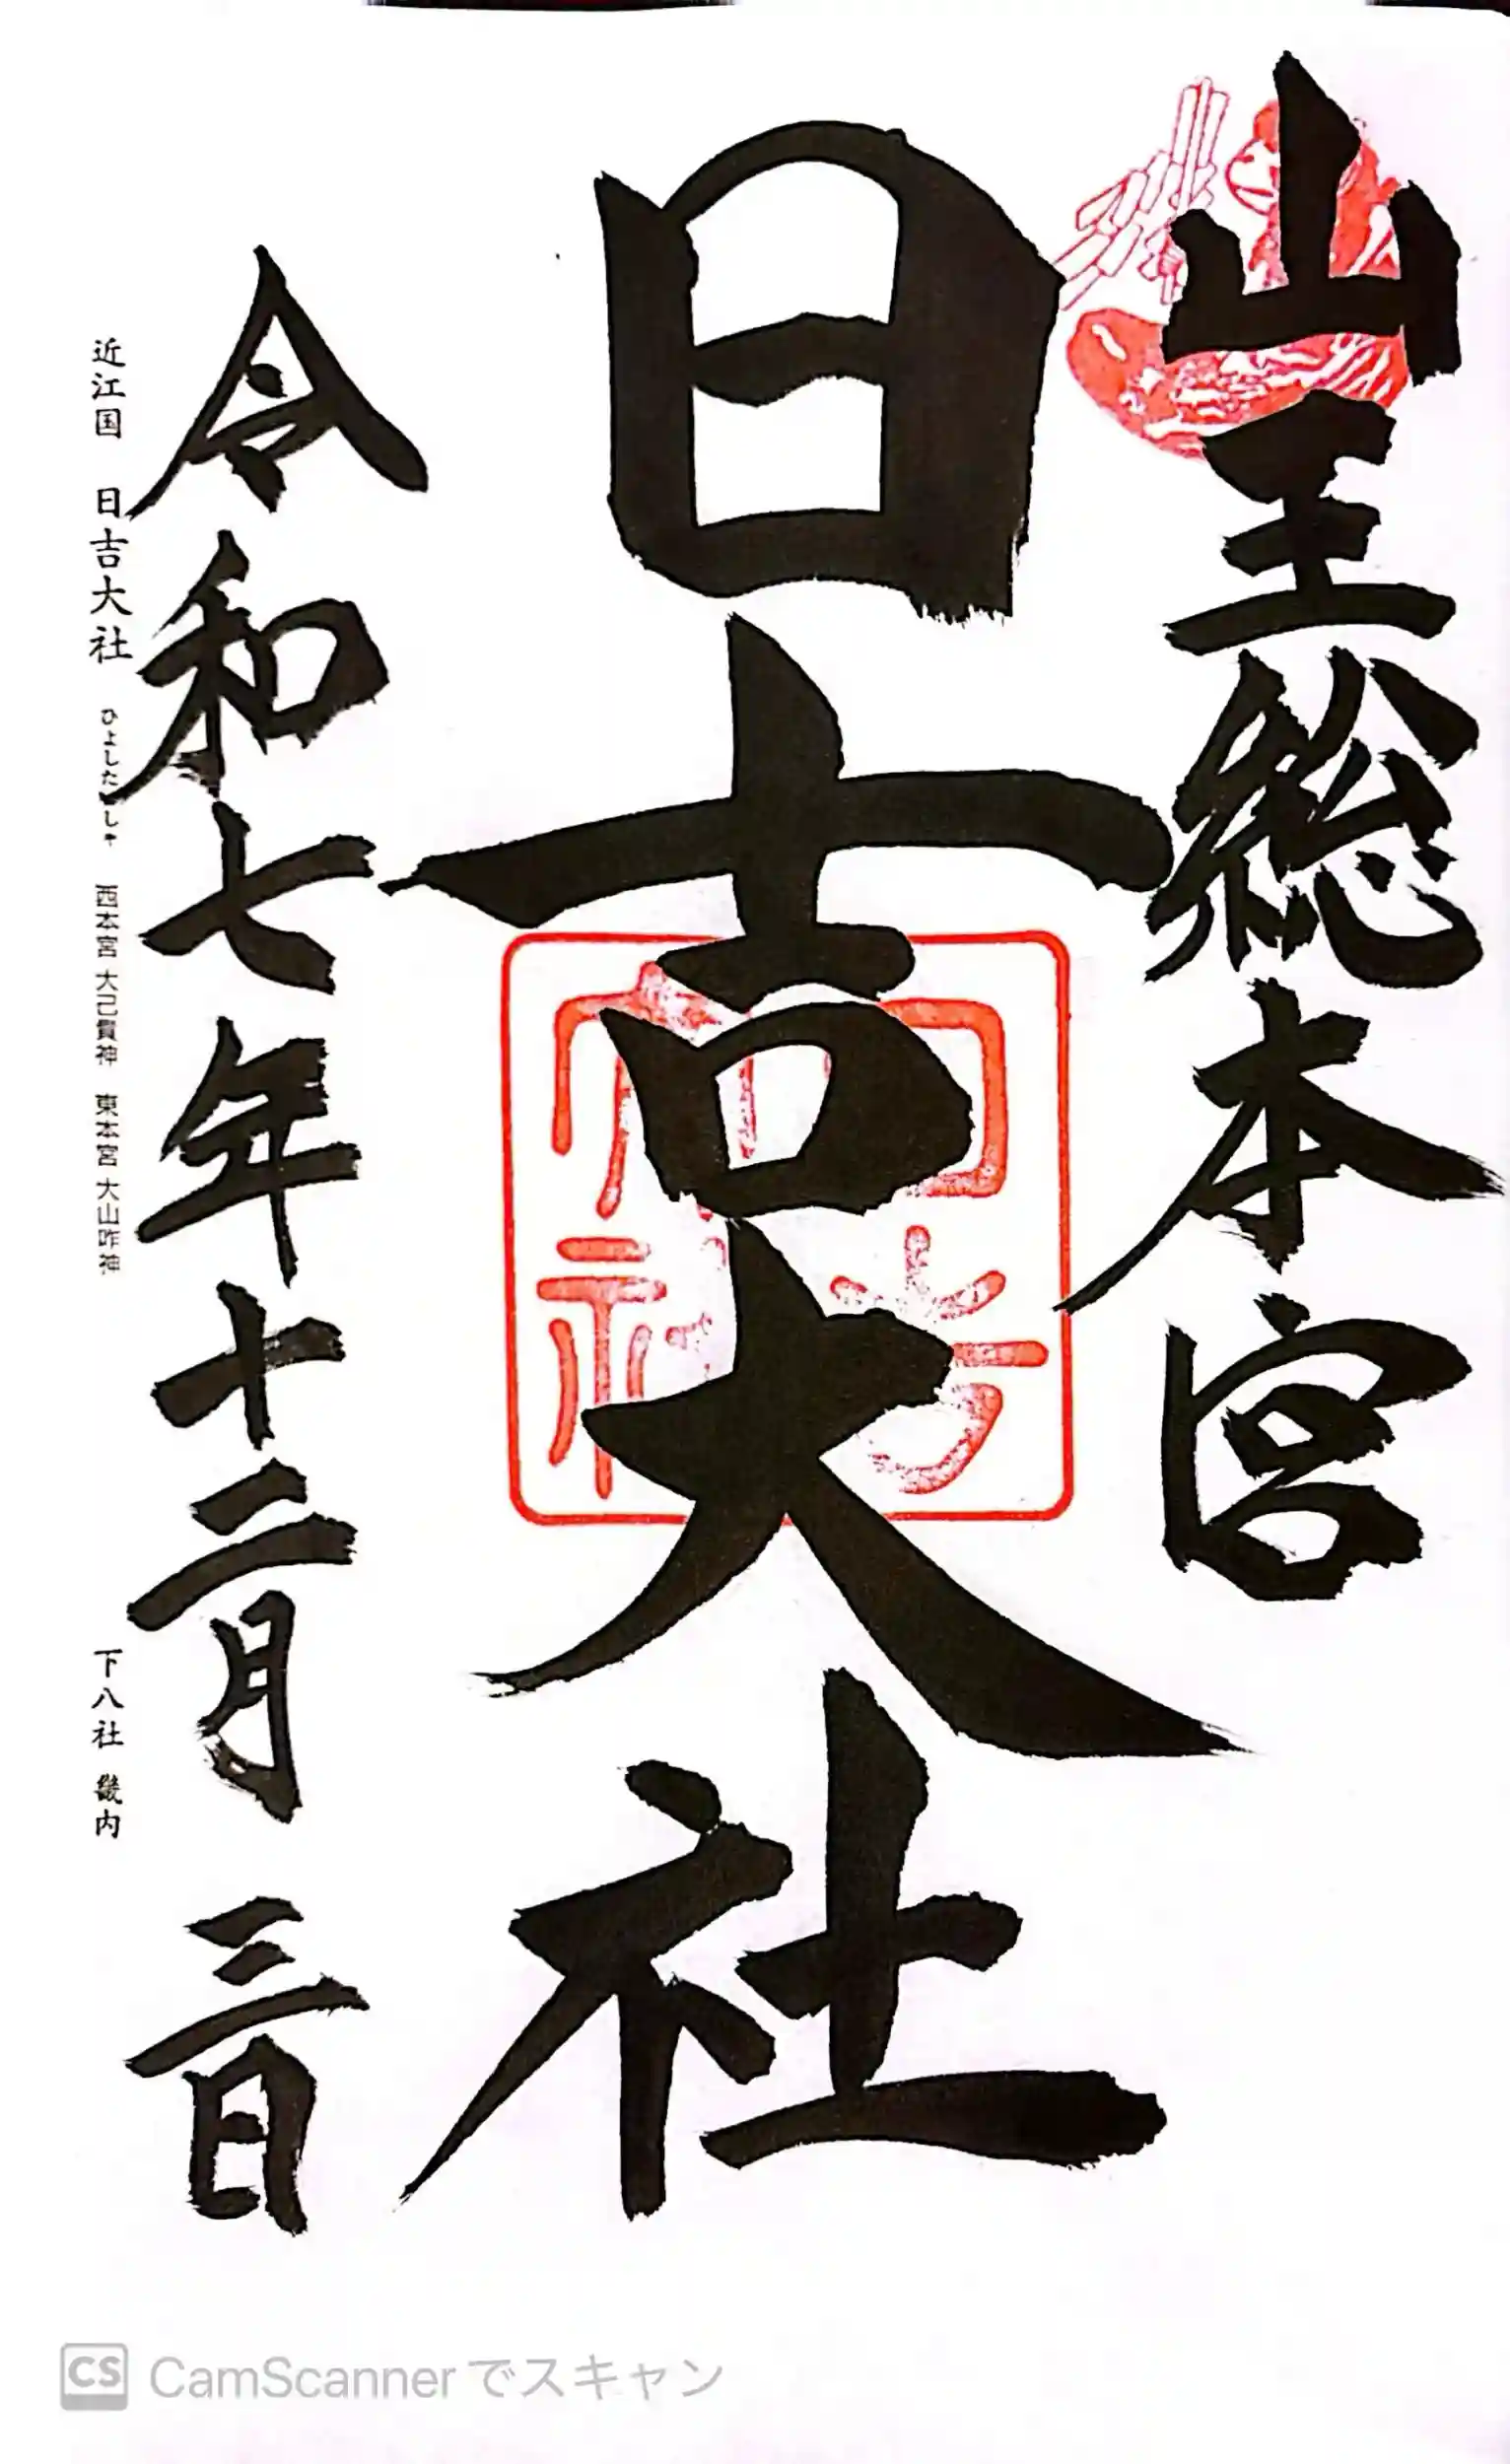 山王総本宮
日吉大社
日吉大社
令和七年十二月三日
近江国 日吉大社 ひよしたいしゃ 西本宮 大己貴神 東本宮 大山咋神
下八社 畿内
CS CamScannerでスキャン